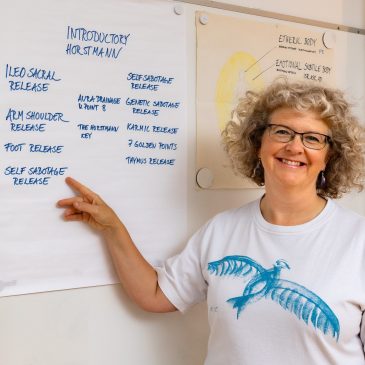 INTRODUCTORY
HORSTMANN
ILEO SACRAL
RELEASE
ARM SHOULDER
RELEASE
FOOT RELEASE
SELF SABOTAGE
RELEASE
AURA DRAINAGE
THE HORSTMANN
KEY
SELF SABOTAGE
RELEASE
GENETIC SABOTAGE
RELEASE
KARMIC RELEASE
7 GOLDEN POINTS
THYMUS RELEASE
ETHERIC BODY
EMOTIONAL SUBTLE BODY